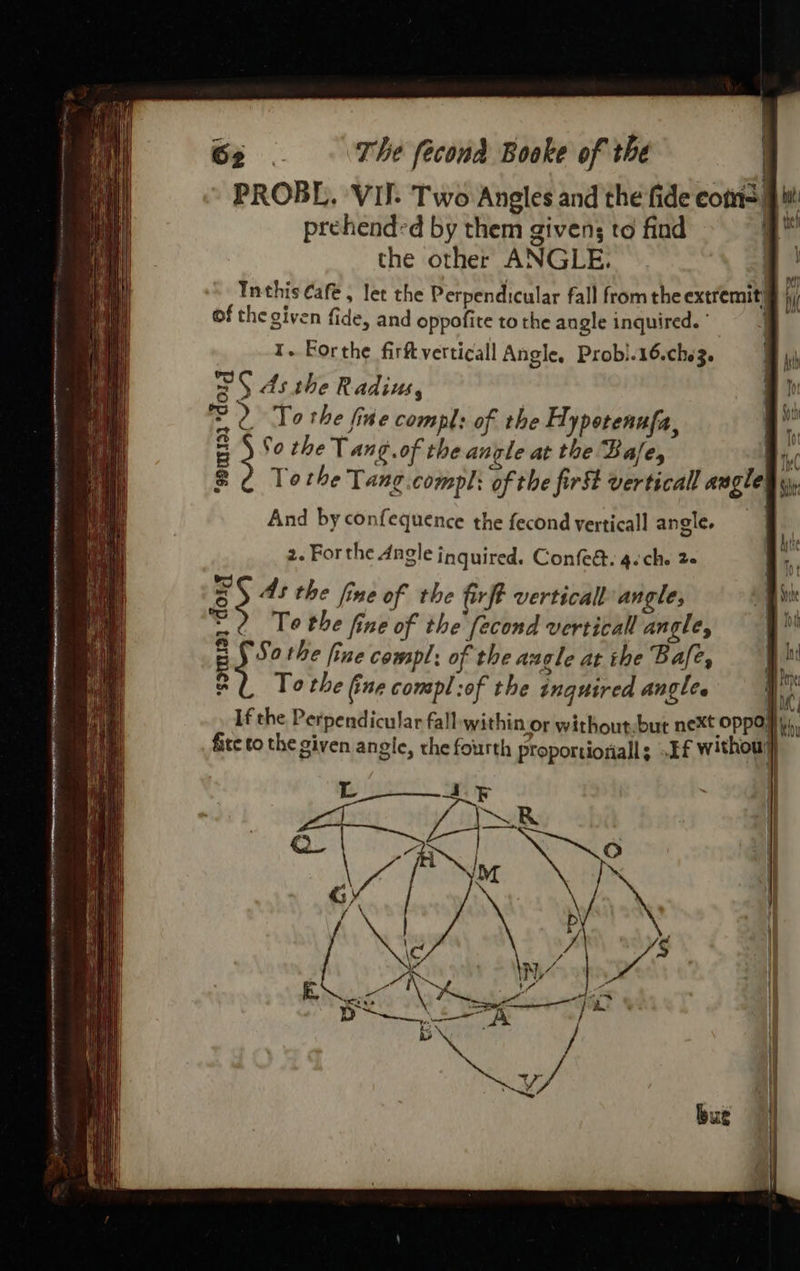 62 The ſecond Booke of the
PROBL. VII. Two Angles and the ſide com-
prehended by them given; to find
the other ANGLE.
In this Caſe, let the Perpendicular fall from the extremity
of the given ſide, and oppoſite to the angle inquired.
1. For the firſt verticall Angle, Probl.16.ch.3.
As the Radius,
To the ſine compl: of the Hypotenuſa,
So the Tang.of the angle at the Baſe,
To the Tang.compl: of the firſt verticall angle
proportional termes
And by conſequence the ſecond verticall angle.
2. For the Angle inquired. Conſect. 4. ch. 2.
As the ſine of the firſt verticall angle,
To the ſine of the ſecond verticall angle,
So the ſine compl: of the angle at the Baſe,
To the ſine compl:of the inquired angle.
If the Perpendicular fall within or without, but next oppo-
ſite to the given angle, the fourth proportionall; If without
L F
R
Q O
H M
G
P
C S
N
E
D A
B
V
but